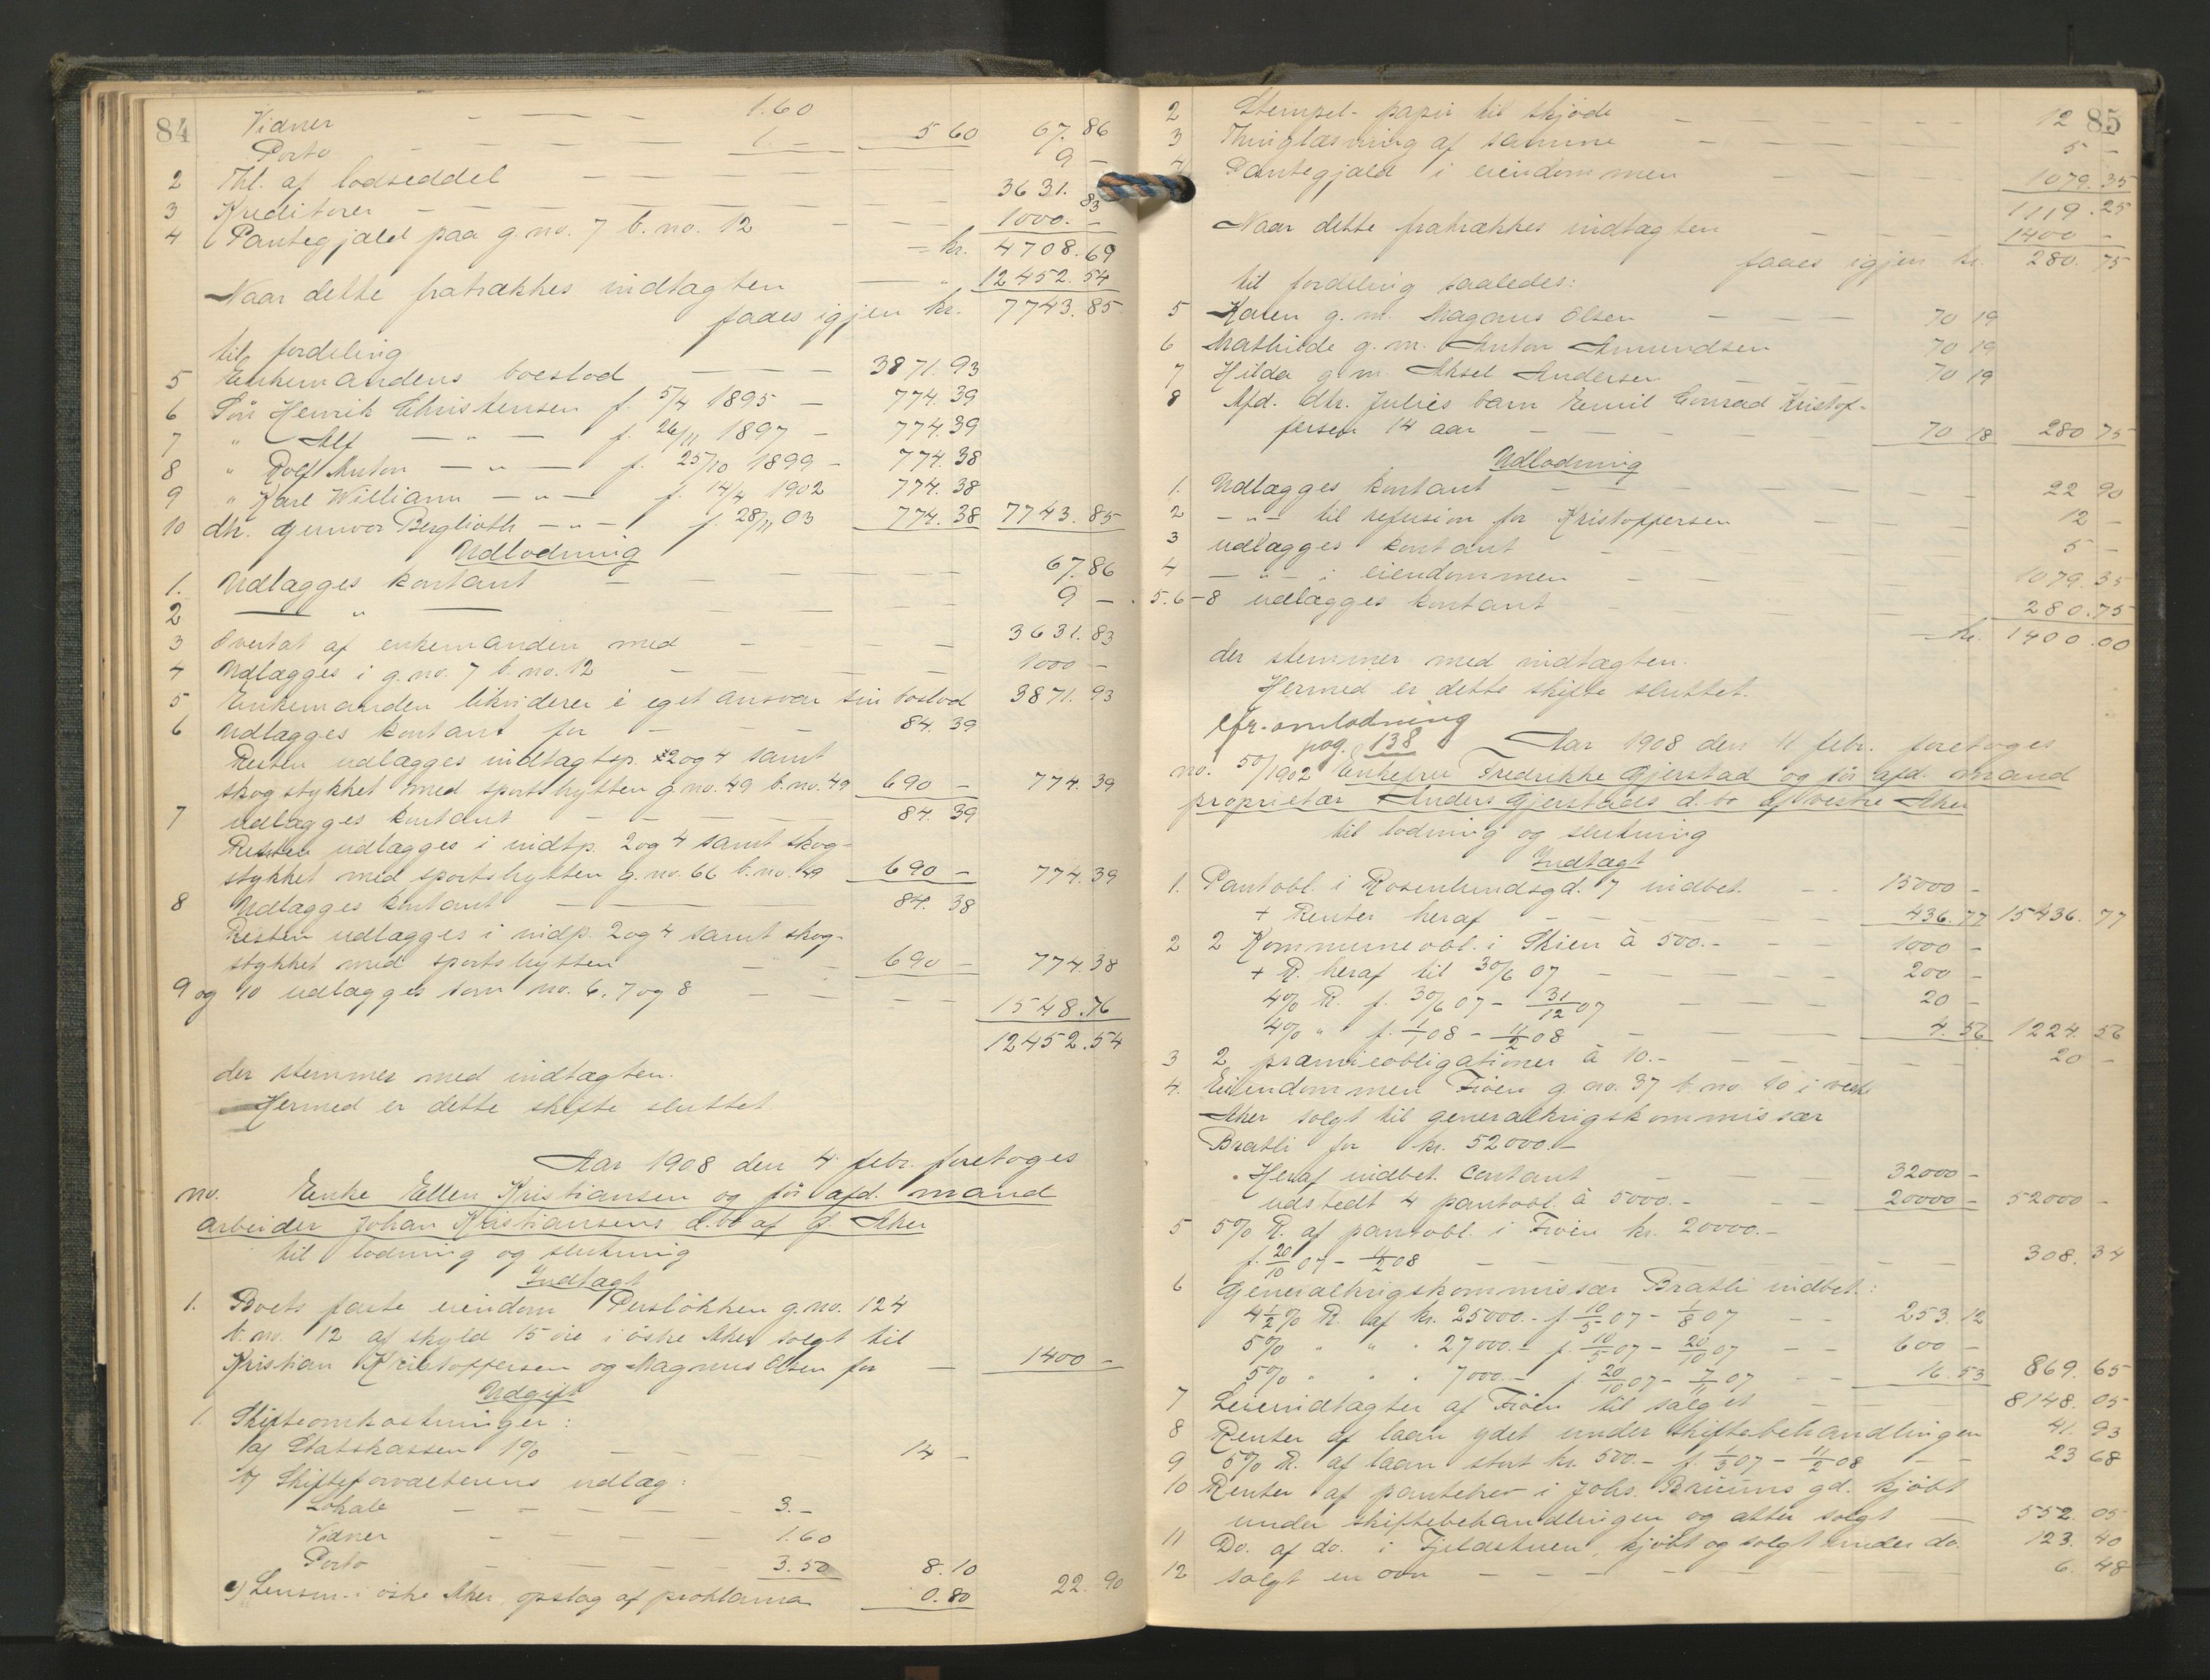 84
Vidner — — — 1.60
Porto — — — 1.— 5 60 67.86
2 Thl. af lodseddel — — — 9 —
3 Kreditorer — — — 3631.83
4 Pantegjæld paa g.no. 7 b.no. 12 — — 1000.—
= kr. 4708.69
Naar dette fratrækkes indtægten — " 12452.54
faaes igjen kr. 7743.85
til fordeling
5 Enkemandens boeslod — — — 3871.93
6 Søn Henrik Christensen f. 5/4 1895 — 774.39
7 " Alf — " — f. 26/11 1897 — 774.39
8 " Rolf Anton — " — f. 25/10 1899 — 774.38
9 " Karl William — " — f. 14/4 1902 774.38
10 dtr. Gunvor Berglioth — " — f. 28/11 03 774.38 7743.85
Udlodning
1. Udlægges kontant — — — 67.86
2 — " — — — 9 —
3 Overtat af enkemanden med — — — 3631.83
4 Udlægges i g.no. 7 b.no. 12 — — — 1000 —
5 Enkemanden likviderer i eget ansvar sin boslod 3871.93
6 Udlægges kontant for — — — 84.39
Resten udlægges indtægtsp. 2 og 4 samt
skogstykket med sportshytten g.no. 49 b.no. 49 690 — 774.39
7 udlægges kontant — — — 84.39
Resten udlægges i indtp. 2 og 4 samt skog-
stykket med sportshytten g.no. 66 b.no. 49 690 — 774.39
8 Udlægges kontant — — — 84.38
Resten udlægges i indp. 2 og 4 samt skog-
stykket med sportshytten — — 690 — 774.38
9 og 10 udlægges som no. 6, 7 og 8 — — — 1548.76
12452.54
der stemmer med indtægten.
Hermed er dette skifte sluttet
Aar 1908 den 4 febr. foretoges
no. Enke Ellen Kristiansen og før afd. mand
arbeider Johan Kristiansens d.bo af Ø. Aker
til lodning og slutning
Indtægt
1. Boets faste eiendom Persløkken g.no. 124
b.no. 12 af skyld 15 øre i østre Aker solgt til
Kristian Kristoffersen og Magnus Olsen for — 1400 —
Udgift
1. Skifteomkostninger:
a) Statskassen 1% — — — 14 —
b) Skifteforvalterens udlæg:
Lokale — — — 3.—
Vidner — — — 1.60
Porto — — — 3.50 8.10
c) Lensm. i østre Aker, opslag af proklama 0.80 22.90
85
2 Stempel-papir til skjøde — — — 12
3 Thinglæsning af samme — — — 5 —
4 Pantegjæld i eiendommen — — — 1079.35
1119.25
Naar dette fratrækkes indtægten — — — 1400 —
faaes igjen kr. 280.75
til fordeling saaledes:
5 Karen g.m. Magnus Olsen — — — 70 19
6 Mathilde g.m. Anton Amundsen 70 19
7 Hilda g.m. Aksel Andersen — — — 70 19
8 Afd. dtr. Julies barn Emil Conrad Kristof-
fersen 14 aar — — — 70 18 280 75
Udlodning
1. Udlægges kontant — — — 22 90
2 — " — til refusion for Kristoffersen — 12 —
3 udlægges kontant — — — 5 —
4 — " — i eiendommen — — 1079.35
5.6–8 udlægges kontant — — 280.75
= kr. 1400.00
der stemmer med indtægten.
Hermed er dette skifte sluttet.
cfr. omlodning
pag. 138
Aar 1908 den 11 febr. foretoges
no. 50/1902 Enkefru Fredrikke Gjerstad og før afd. mand
proprietær Anders Gjerstads d.bo af vestre Aker
til lodning og slutning
Indtægt
1. Pantobl. i Rosenlundsgd. 7 indbet. — — 15000 —
+ Renter heraf — — — 436.77 15436.77
2 2 Kommuneobl. i Skien à 500.— — — 1000 —
+ R. heraf til 30/6 07 — — — 200 —
4% R. f. 30/6 07 – 31/12 07 — — — 20 —
4% " f. 1/1 08 – 11/2 08 — — — 4.56 1224.56
3 2 præmieobligationer à 10.— — — — 20 —
4. Eiendommen Frøen g.no. 37 b.no. 10 i vestre
Aker solgt til generalkrigskommissær
Bratli for kr. 52000.—
Heraf indbet. contant — — — 32000 —
udstedt 4 pantobl. à 5000.— — — 20000 — 52000 —
5 5% R. af pantobl. i Frøen kr. 20000.—
f. 20/10 07 – 11/2 08 — — — 308.34
6 Generalkrigskommissær Bratli indbet.:
4 1/2 % R. af kr. 25000.— f. 10/5 07 – 1/8 07 — — 253.12
5% " " " 27000.— f. 10/5 07 – 20/10 07 — — 600 —
5% " " " 7000.— f. 20/10 07 – 7/11 07 — — 16.53 869.65
7 Leieindtægter af Frøen til salget — — 8148.05
8 Renter af laan ydet under skiftebehandlingen 41.93
9 5% R. af laan stort kr. 500.— f. 1/3 07 – 11/2 08 — — 23 68
10 Renter af pantebrev i Johs. Bruuns gd. kjøbt
under skiftebehandlingen og atter solgt — 552.05
11 Do. af do. i Fjeldstuen, kjøbt og solgt under do. 123.40
12 solgt en ovn — — — 6.48